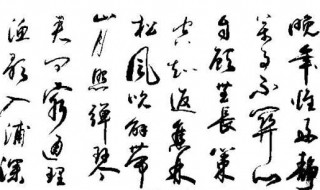 晚年惟好靜
萬事不關心
自顧無長策
空知返舊林
松風吹解帶
山月照彈琴
君問窮通理
漁歌入浦深